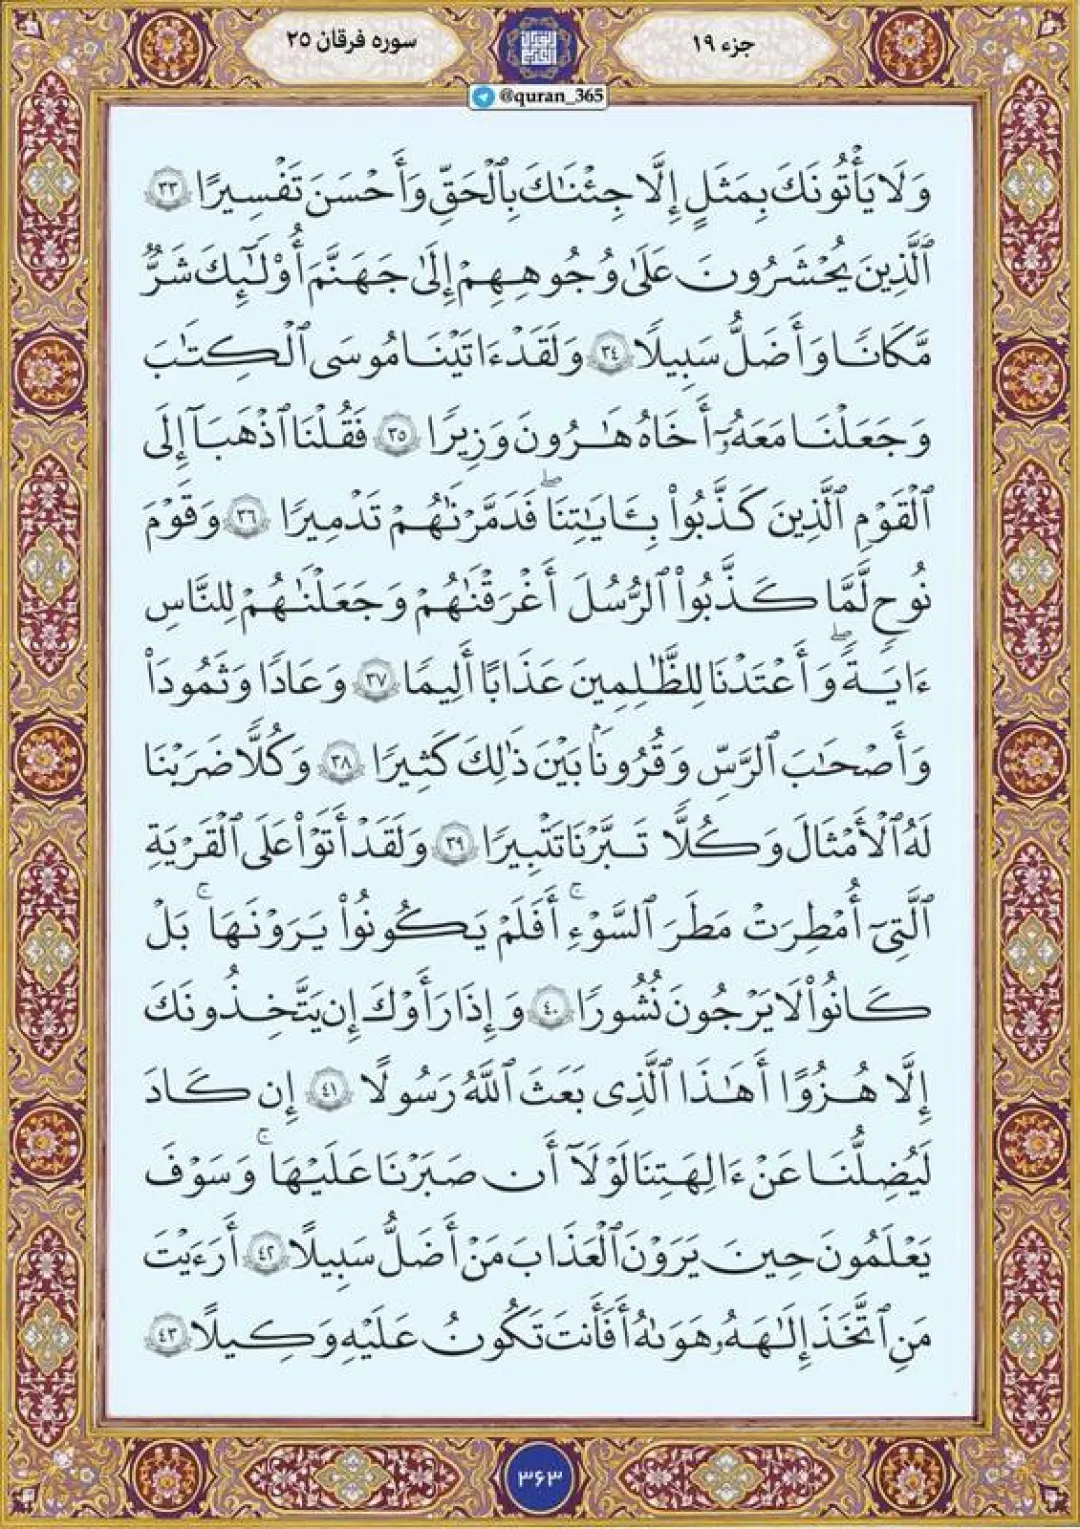 جزء ۱۹
سوره فرقان ۲۵
@quran_365
وَلَا يَأْتُونَكَ بِمَثَلٍ إِلَّا جِئْنَٰكَ بِٱلْحَقِّ وَأَحْسَنَ تَفْسِيرًا ٣٣
ٱلَّذِينَ يُحْشَرُونَ عَلَىٰ وُجُوهِهِمْ إِلَىٰ جَهَنَّمَ أُوْلَٰٓئِكَ شَرٌّ
مَّكَانًا وَأَضَلُّ سَبِيلًا ٣٤ وَلَقَدْ ءَاتَيْنَا مُوسَى ٱلْكِتَٰبَ
وَجَعَلْنَا مَعَهُۥٓ أَخَاهُ هَٰرُونَ وَزِيرًا ٣٥ فَقُلْنَا ٱذْهَبَآ إِلَى
ٱلْقَوْمِ ٱلَّذِينَ كَذَّبُواْ بِـَٔايَٰتِنَاۖ فَدَمَّرْنَٰهُمْ تَدْمِيرًا ٣٦ وَقَوْمَ
نُوحٍ لَّمَّا كَذَّبُواْ ٱلرُّسُلَ أَغْرَقْنَٰهُمْ وَجَعَلْنَٰهُمْ لِلنَّاسِ
ءَايَةًۖ وَأَعْتَدْنَا لِلظَّٰلِمِينَ عَذَابًا أَلِيمًا ٣٧ وَعَادًا وَثَمُودَاْ
وَأَصْحَٰبَ ٱلرَّسِّ وَقُرُونَۢا بَيْنَ ذَٰلِكَ كَثِيرًا ٣٨ وَكُلًّا ضَرَبْنَا
لَهُ ٱلْأَمْثَٰلَ وَكُلًّا تَبَّرْنَا تَتْبِيرًا ٣٩ وَلَقَدْ أَتَوْاْ عَلَى ٱلْقَرْيَةِ
ٱلَّتِىٓ أُمْطِرَتْ مَطَرَ ٱلسَّوْءِۚ أَفَلَمْ يَكُونُواْ يَرَوْنَهَاۚ بَلْ
كَانُواْ لَا يَرْجُونَ نُشُورًا ٤٠ وَإِذَا رَأَوْكَ إِن يَتَّخِذُونَكَ
إِلَّا هُزُوًا أَهَٰذَا ٱلَّذِى بَعَثَ ٱللَّهُ رَسُولًا ٤١ إِن كَادَ
لَيُضِلُّنَا عَنْ ءَالِهَتِنَا لَوْلَآ أَن صَبَرْنَا عَلَيْهَاۚ وَسَوْفَ
يَعْلَمُونَ حِينَ يَرَوْنَ ٱلْعَذَابَ مَنْ أَضَلُّ سَبِيلًا ٤٢ أَرَءَيْتَ
مَنِ ٱتَّخَذَ إِلَٰهَهُۥ هَوَىٰهُ أَفَأَنتَ تَكُونُ عَلَيْهِ وَكِيلًا ٤٣
۳۶۳